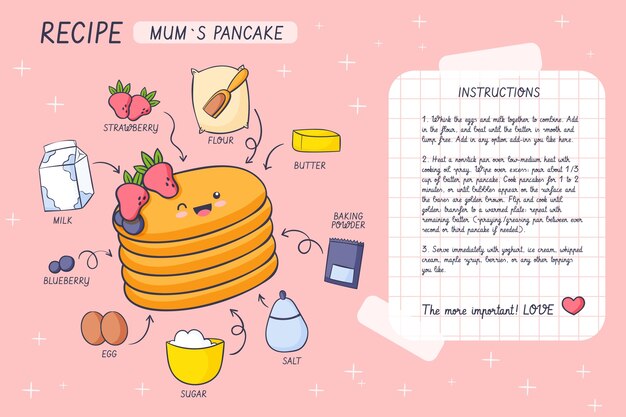 RECIPE
MUM`S PANCAKE
STRAWBERRY
FLOUR
BUTTER
MILK
BAKING
POWDER
BLUEBERRY
EGG
SUGAR
SALT
INSTRUCTIONS
1. Whisk the eggs and milk together to combine. Add
in the flour, and beat until the batter is smooth and
lump free. Add in any option add-ins you like here.
2. Heat a nonstick pan over low-medium heat with
cooking oil spray. Wipe over excess; pour about 1/3
cup of batter per pancake. Cook pancakes for 1 to 2
minutes, or until bubbles appear on the surface and
the bases are golden brown. Flip and cook until
golden; transfer to a warmed plate; repeat with
remaining batter (spraying/greasing pan between every
second or third pancake if needed).
3. Serve immediately with yoghurt, ice cream, whipped
cream, maple syrup, berries, or any other toppings
you like.
The more important! LOVE